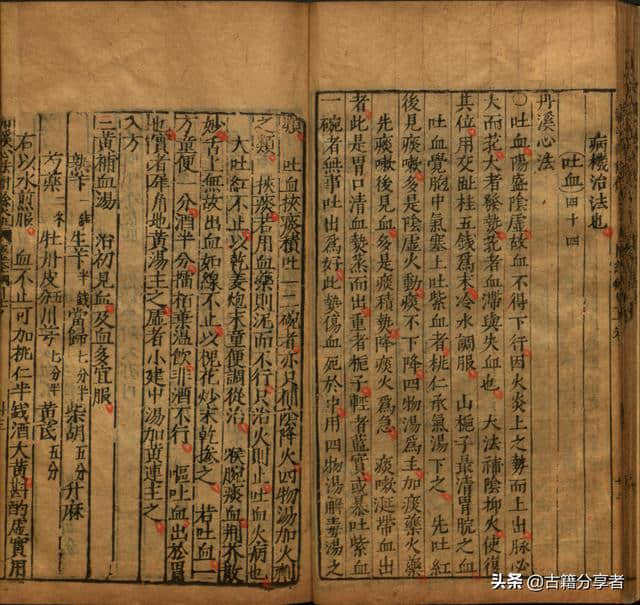 病機治法也
吐血 四十四
丹溪心法
○吐血陽盛陰虛故血不得下行因火炎上之勢而上出脉必
大而芤大者發熱芤者血滯與失血也 大法補陰抑火使復
其位用交趾桂五錢爲末冷水調服 山梔子最清胃脘之血
吐血覺胸中氣塞上吐紫血者桃仁承氣湯下之 先吐紅
後見痰嗽多是陰虛火動痰不下降四物湯爲主加痰藥火藥
先痰嗽後見血多是痰積熱降痰火爲急 痰嗽涎帶血出
者此是胃口清血熱蒸而出重者梔子輕者藍實或暴吐紫血
一碗者無事吐出爲好此熱傷血死於中用四物湯解毒湯之
類 吐血挾痰積吐一二碗者亦只補陰降火四物湯加火劑
之類 挾痰若用血藥則泥而不行只治火則止吐血火病也
大吐紅不止以乾姜炮末童便調從治 喉腕痰血荆芥散
妙舌上無故出血如線不止以槐花炒末乾摻之 若吐血一
方童便一分酒半分擂栢葉温飲非酒不行 嘔吐血出於胃
也實者犀角地黄湯主之虛者小建中湯加黄連主之
入方
三黄補血湯 治初見血及血多宜服
熟芐一錢 生芐半錢 當歸七分半 柴胡五分 升麻
芍藥 牡丹皮各五分 川芎七分半 黄芪五分
右以水煎服 血不止可加桃仁半錢酒大黄斟酌虛實用
头条 @古籍分享者